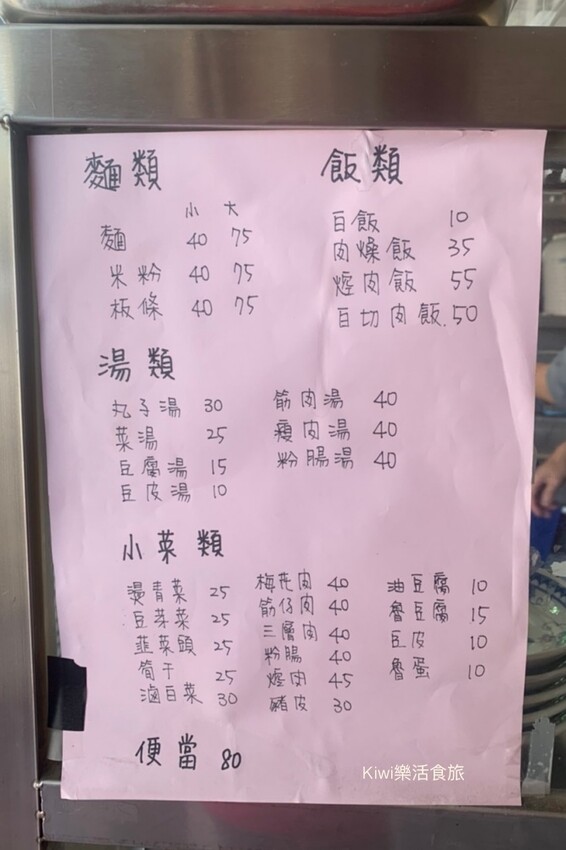 麵類
小 大
麵 40 75
米粉 40 75
板條 40 75
飯類
白飯 10
肉燥飯 35
焢肉飯 55
白切肉飯 50
湯類
丸子湯 30
菜湯 25
豆腐湯 15
豆皮湯 10
筋肉湯 40
瘦肉湯 40
粉腸湯 40
小菜類
燙青菜 25
豆芽菜 25
韮菜頭 25
筍干 25
滷白菜 30
梅花肉 40
筋仔肉 40
三層肉 40
粉腸 40
焢肉 45
豬皮 30
油豆腐 10
魯豆腐 15
豆皮 10
魯蛋 10
便當 80
Kiwi樂活食旅